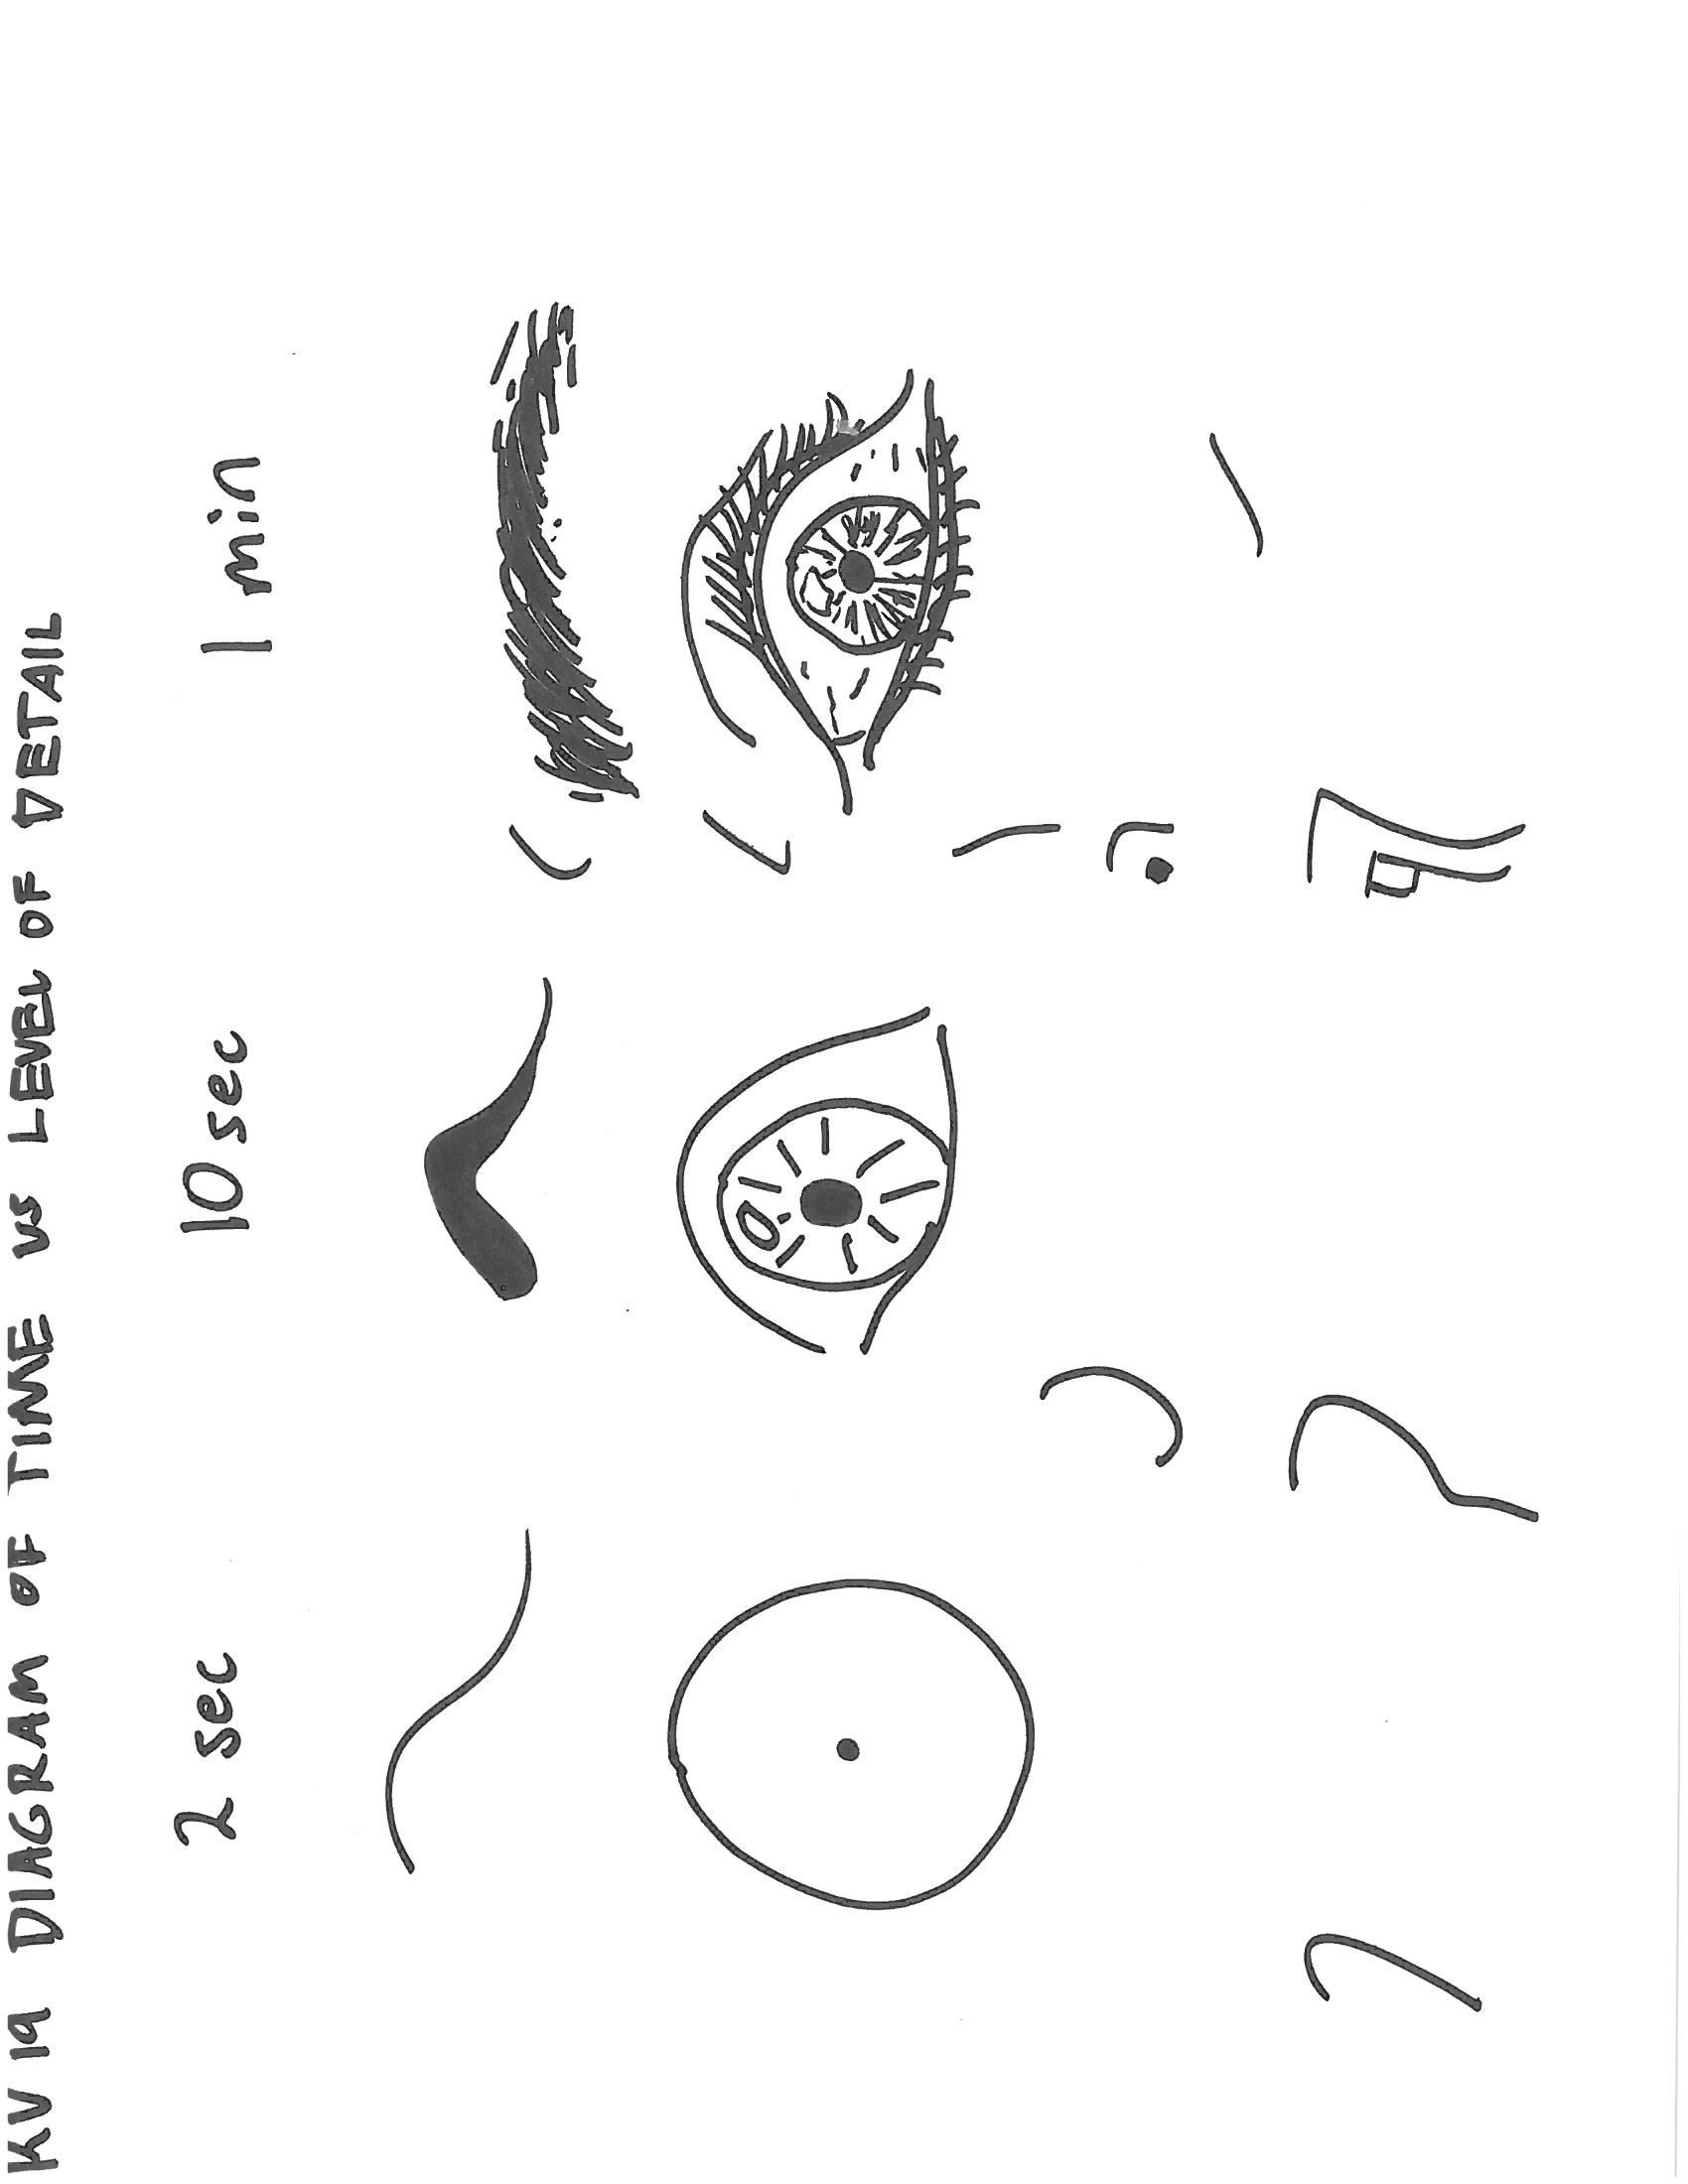 KV 19 DIAGRAM OF TIME VS LEVEL OF DETAIL
2 sec
10 sec
1 min